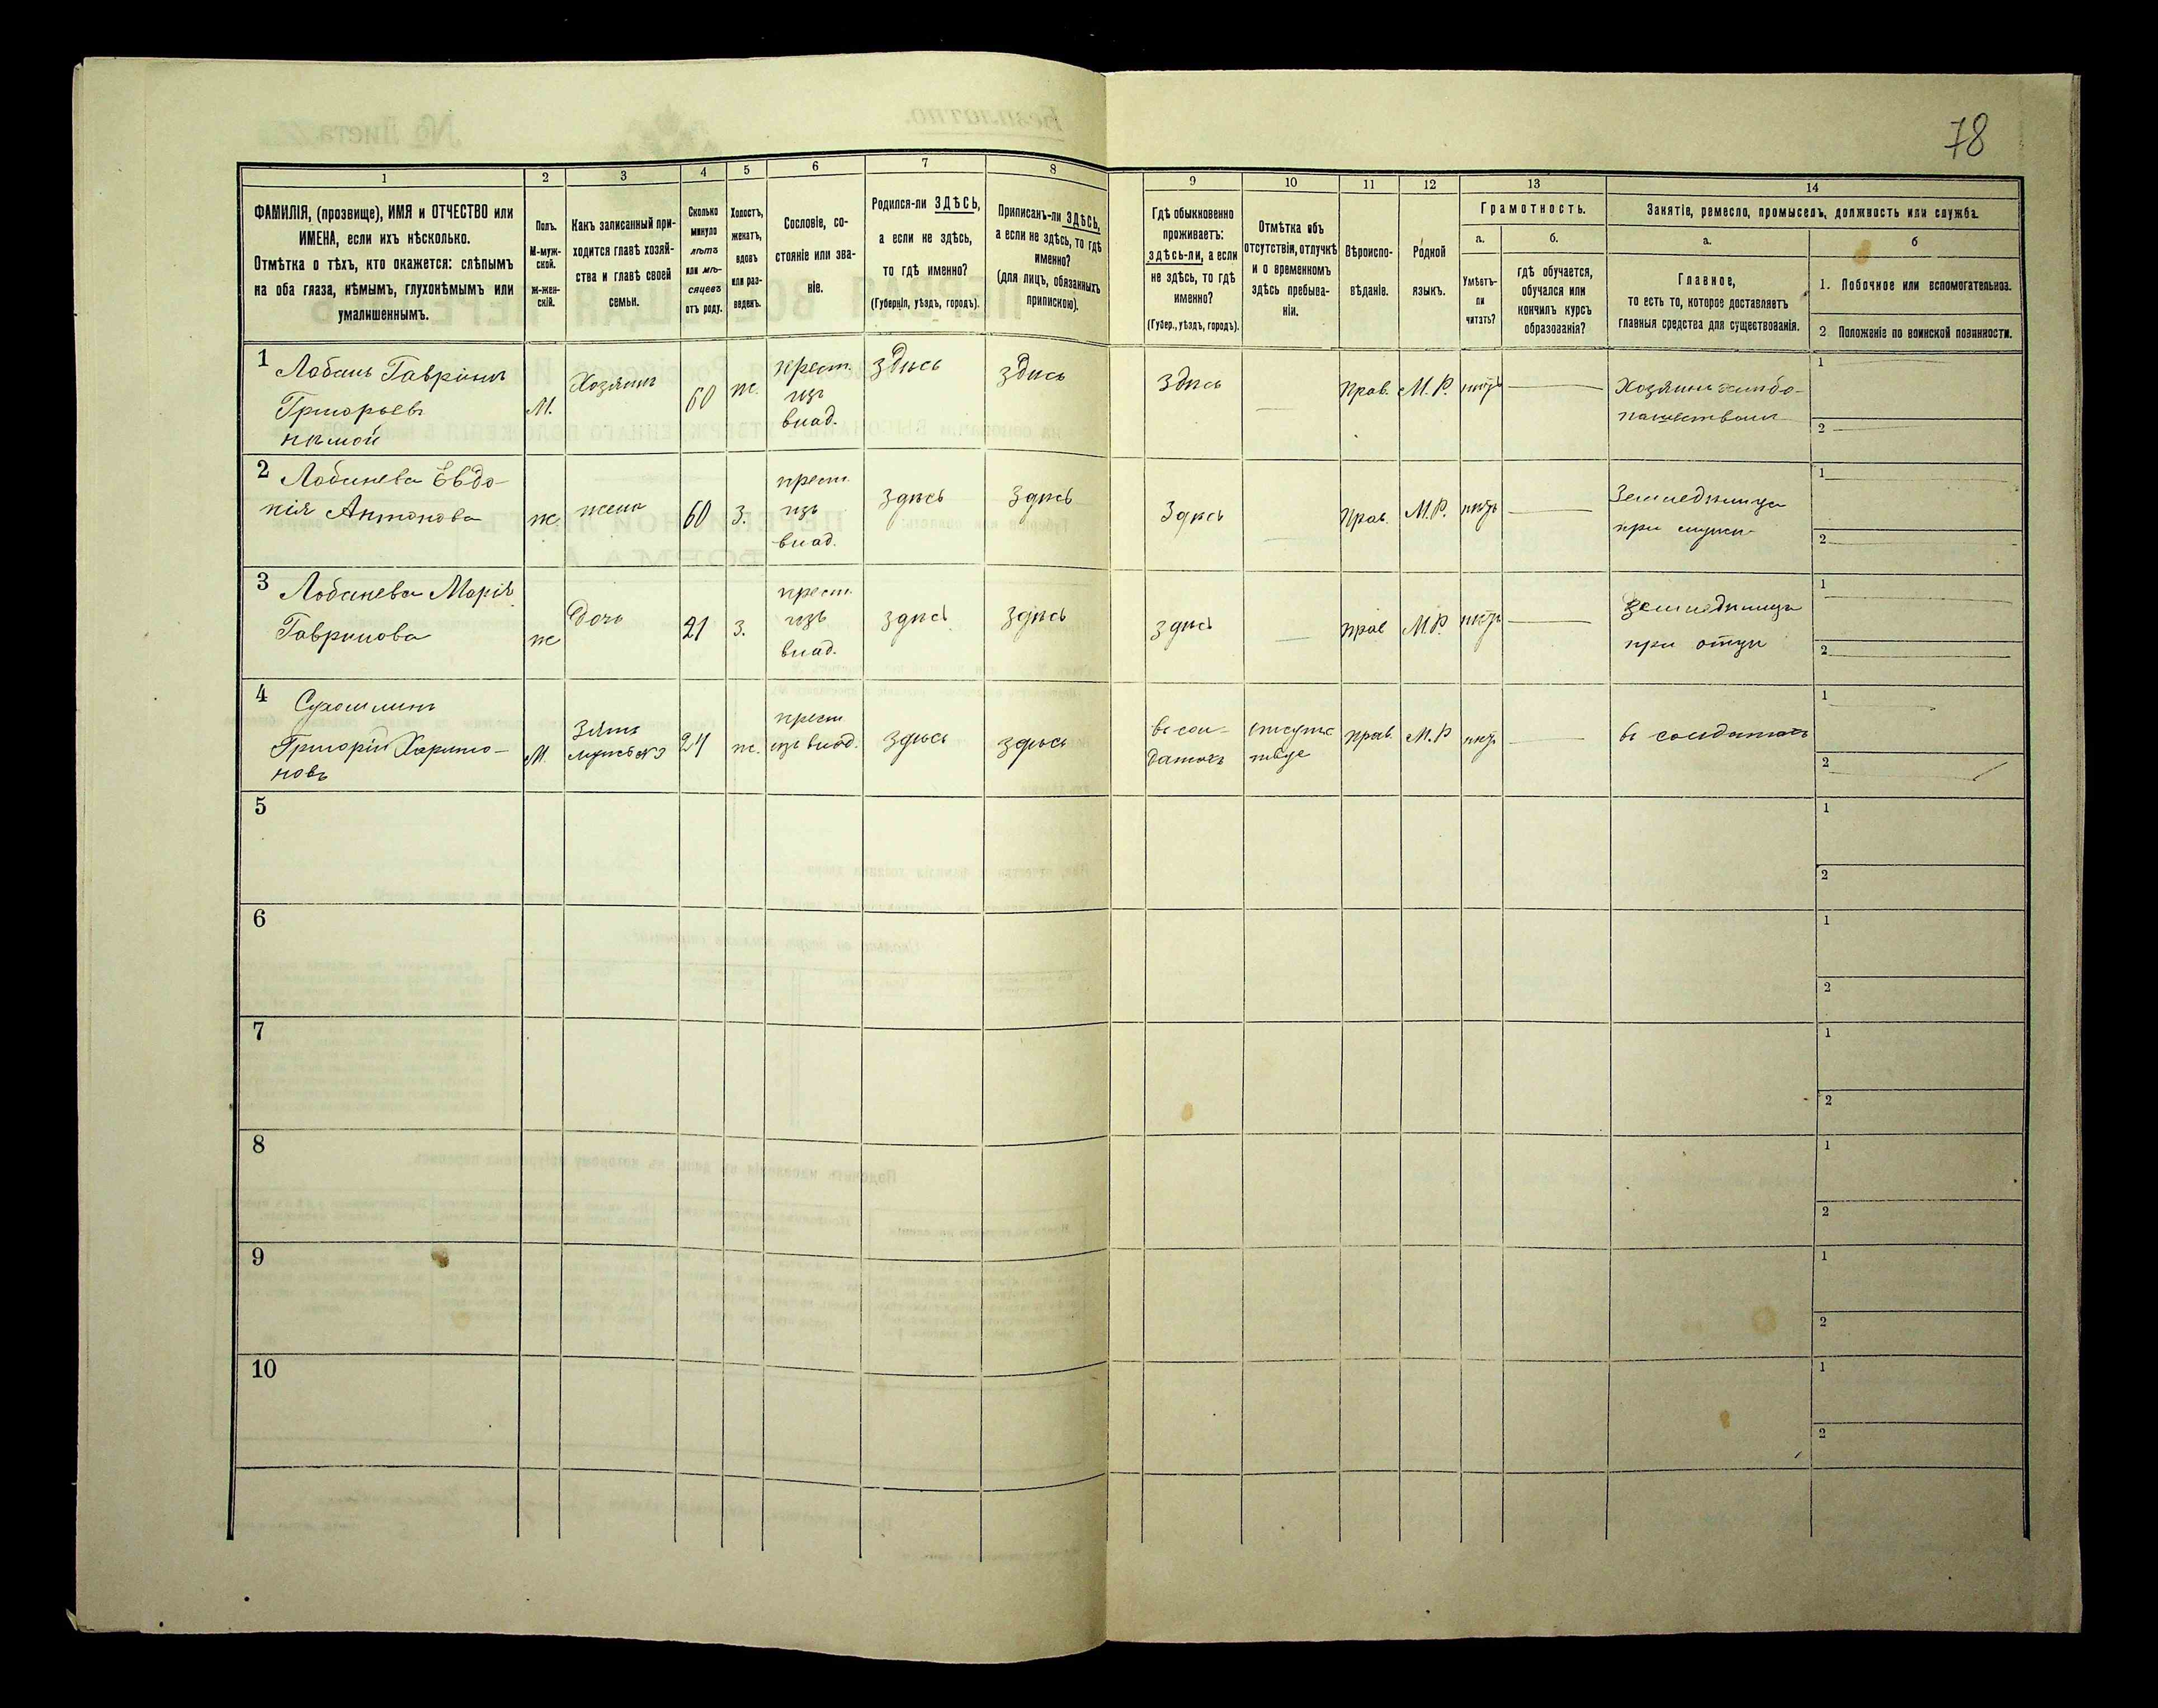 78
1
2
3
4
5
6
7
8
9
10
11
12
13
14
ФАМИЛІЯ, (прозвище), ИМЯ и ОТЧЕСТВО или
ИМЕНА, если ихъ нѣсколько.
Отмѣтка о тѣхъ, кто окажется: слѣпымъ
на оба глаза, нѣмымъ, глухонѣмымъ или
умалишеннымъ.
Полъ.
М-муж-
ской.
Ж-жен-
скій.
Какъ записанный при-
ходится главѣ хозяй-
ства и главѣ своей
семьи.
Сколько
минуло
лѣтъ
или мѣ-
сяцевъ
отъ роду.
Холостъ,
женатъ,
вдовъ
или раз-
веденъ.
Сословіе, со-
стояніе или зва-
ніе.
Родился-ли ЗДѢСЬ,
а если не здѣсь,
то гдѣ именно?
(Губернія, уѣздъ, городъ).
Приписанъ-ли ЗДѢСЬ,
а если не здѣсь, то гдѣ
именно?
(для лицъ, обязанныхъ
припискою).
Гдѣ обыкновенно
проживаетъ:
здѣсь-ли, а если
не здѣсь, то гдѣ
именно?
(Губер., уѣздъ, городъ).
Отмѣтка объ
отсутствіи, отлучкѣ
и о временномъ
здѣсь пребыва-
ніи.
Вѣроиспо-
вѣданіе.
Родной
языкъ.
Грамотность.
а.
Умѣетъ-
ли
читать?
б.
гдѣ обучается,
обучался или
кончилъ курсъ
образованія?
Занятіе, ремесло, промыселъ, должность или служба.
а.
Главное,
то есть то, которое доставляетъ
главныя средства для существованія.
б
1. Побочное или вспомогательное.
2. Положеніе по воинской повинности.
1 Лобань Гавріилъ
Григорьевъ
нѣмой
М.
Хозяинъ
60
ж.
крест.
изъ
влад.
здѣсь
здѣсь
здѣсь
Прав.
М.Р.
нѣтъ
Хозяинъ хлѣбо-
пашествомъ
1
2
2 Лобанева Евдо-
кія Антонова
ж
жена
60
з.
крест.
изъ
влад.
здѣсь
здѣсь
здѣсь
Прав.
М.Р.
нѣтъ
Земледѣлица
при мужѣ
1
2
3 Лобанева Марія
Гаврилова
ж
дочь
21
з.
крест.
изъ
влад.
здѣсь
здѣсь
здѣсь
прав
М.Р.
нѣтъ
Земледѣлица
при отцѣ
1
2
4
Григорій Харито-
новъ
М.
Зять
мужъ №3
24
ж.
крест
изъ влад.
здѣсь
здѣсь
въ сол-
датахъ
отсутс
твуе
прав.
М.Р
нѣтъ
въ солдатахъ
1
2
5
1
2
6
1
2
7
1
2
8
1
2
9
1
2
10
1
2